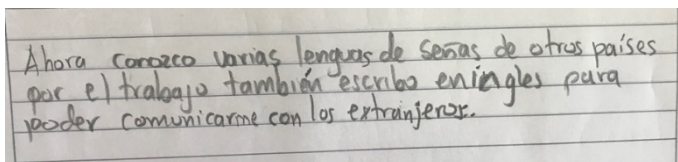 Ahora conozco varias lenguas de señas de otros países
por el trabajo también escribo eningles para
poder comunicarme con los extranjeros.